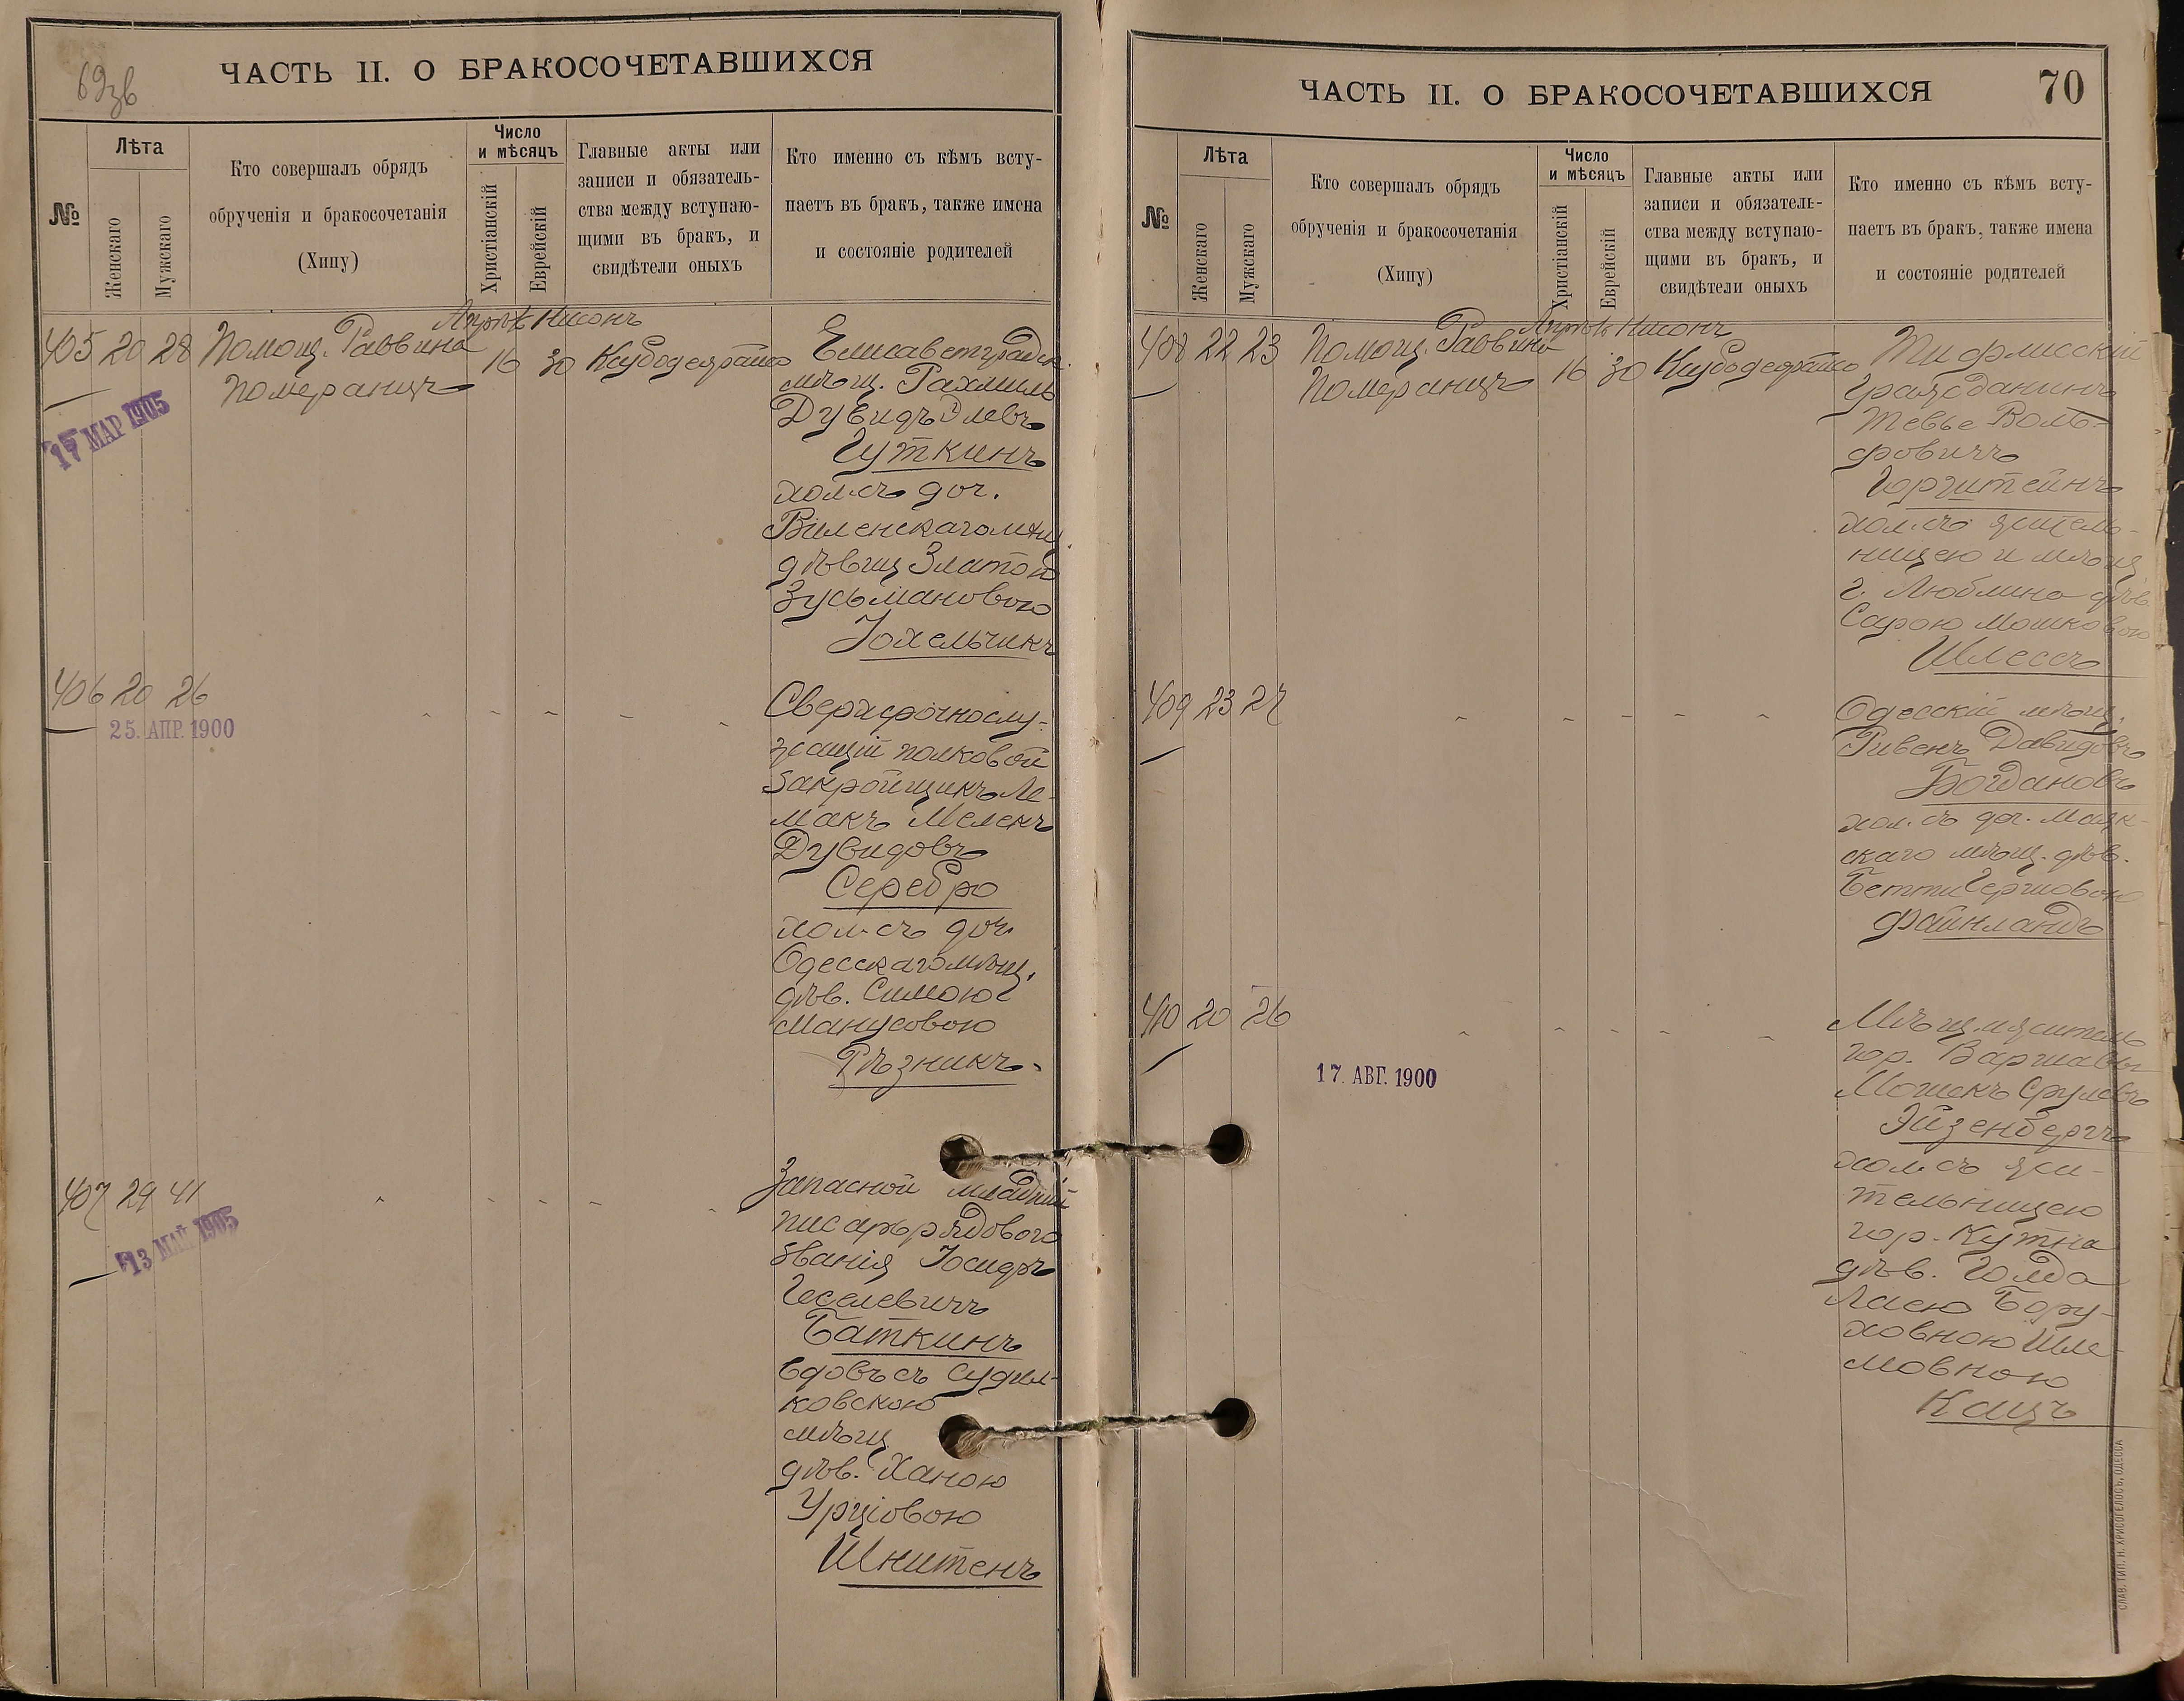 69зв
ЧАСТЬ II. О БРАКОСОЧЕТАВШИХСЯ
№
Лѣта
Женскаго
Мужскаго
Кто совершалъ обрядъ
обрученія и бракосочетанія
(Хипу)
Число
и мѣсяцъ
Христіанскій
Еврейскій
Главные акты или
записи и обязатель-
ства между вступаю-
щими въ бракъ, и
свидѣтели оныхъ
Кто именно съ кѣмъ всту-
паетъ въ бракъ, также имена
и состояніе родителей
405 20 28 Помощ. Раввина
Померанцъ
Апрѣль Нисонъ
16 30
17 МАР 1905
Елисаветградск.
мѣщ. Рахмиль
Дувидъ Элевъ
Гуткинъ
хол. съ доч.
Виленскаго мѣщ.
дѣвиц Златою
Зусьмановою
Іохельчикъ
406 20 26
25. АПР. 1900
Сверхсрочнослу-
жащій полковой
закройщикъ Ле-
макъ Мелекъ
Дувидовъ
Серебро
хол. съ доч.
Одесскаго мѣщ.
дѣв. Симою
Манусовою
Рѣзникъ
407 29 41
13 МАЙ 1905
Запасной младшій
писарь рядового
званія Іосифъ
Геселевичъ
Баткинъ
вдовъ съ Судил-
ковскою
мѣщ.
дѣв. Ханою
Урціовою
Шнитенъ
ЧАСТЬ II. О БРАКОСОЧЕТАВШИХСЯ
70
№
Лѣта
Женскаго
Мужскаго
Кто совершалъ обрядъ
обрученія и бракосочетанія
(Хипу)
Число
и мѣсяцъ
Христіанскій
Еврейскій
Главные акты или
записи и обязатель-
ства между вступаю-
щими въ бракъ, и
свидѣтели оныхъ
Кто именно съ кѣмъ всту-
паетъ въ бракъ, также имена
и состояніе родителей
408 22 23 Помощ. Раввина
Померанцъ
Апрѣль Нисонъ
16 30
Тифлисскій
гражданинъ
Тевье Воль-
фовичъ
Горштейнъ
хол. съ житель-
ницею и мѣщ.
г. Люблина дѣв.
Сарою Мошковою
Шлессъ
409 23 27
Одесскій мѣщ.
Ривенъ Давидовъ
Богдановъ
хол. съ доч. Маяк-
скаго мѣщ. дѣв.
Бетти Гершовою
Файнландъ
410 20 26
17. АВГ. 1900
Мѣщ. и житель
гор. Варшавы
Мошекъ Срулевъ
Эйзенбергъ
хол. съ жи-
тельницею
гор. Кутна
дѣв. Голда
Ласею Бору-
ховною Шле-
мовною
Кацъ
СЛАВ. ТИП. Н. ХРИСОГЕЛОСЪ, ОДЕССА